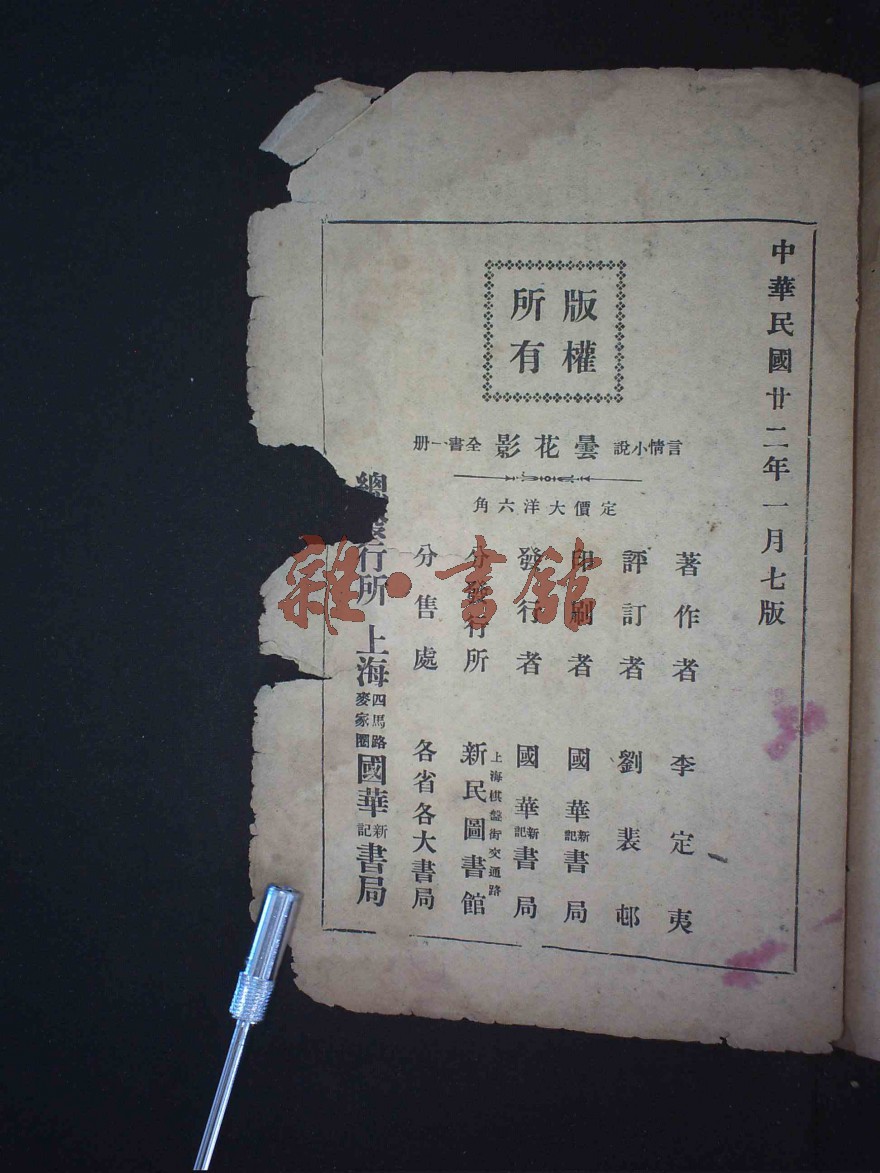 中華民國廿二年一月七版
版權
所有
言情小說 曇花影 全書一册
定價大洋六角
著作者 李定夷
評訂者 劉裴邨
印刷者 國華新記書局
發行者 國華新記書局
分發行所 上海棋盤街交通路 新民圖書館
分售處 各省各大書局
總發行所 上海四馬路麥家圈 國華新記書局
雜·書館